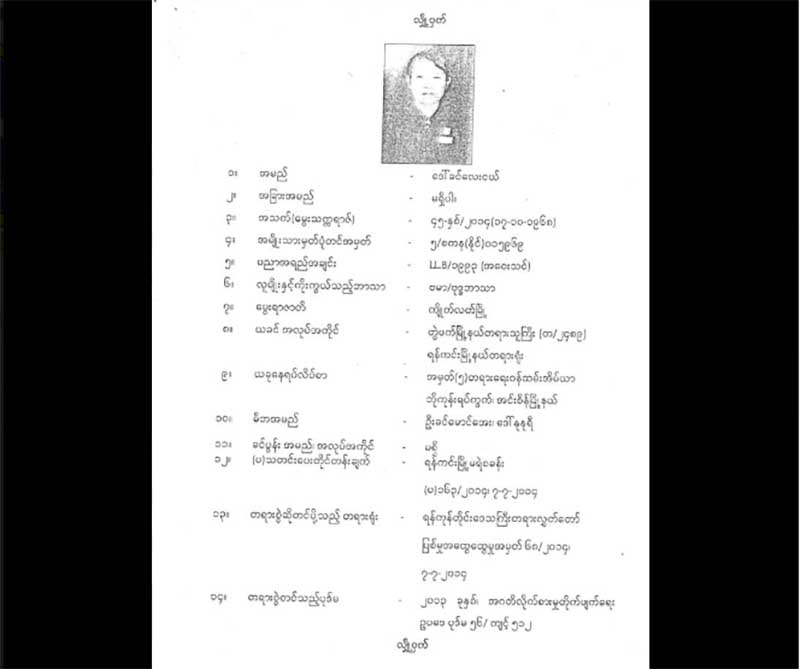 လျှို့ဝှက်
၁။ အမည် - ဒေါ်ခင်လေးငယ်
၂။ အခြားအမည် - မရှိပါ။
၃။ အသက်(မွေးသက္ကရာဇ်) - ၄၅-နှစ်/၂၀၁၄(၁၇-၁၀-၁၉၆၈)
၄။ အမျိုးသားမှတ်ပုံတင်အမှတ် - ၅/စကန(နိုင်)၀၁၅၉၆၉
၅။ ပညာအရည်အချင်း - LL.B/၁၉၉၃ (အဝေးသင်)
၆။ လူမျိုးနှင့်ကိုးကွယ်သည့်ဘာသာ - ဗမာ/ဗုဒ္ဓဘာသာ
၇။ မွေးရာဇာတိ - ကျိုက်လတ်မြို့
၈။ ယခင် အလုပ်အကိုင် - တွဲဖက်မြို့နယ်တရားသူကြီး (တ/၂၄၈၉)
ရန်ကင်းမြို့နယ်တရားရုံး
၉။ ယခုနေရပ်လိပ်စာ - အမှတ်(၅)တရားရေးဝန်ထမ်းအိမ်ယာ
ဘိုကုန်းရပ်ကွက်၊ အင်းစိန်မြို့နယ်
၁၀။ မိဘအမည် - ဦးခင်မောင်အေး၊ ဒေါ်နုနုရီ
၁၁။ ခင်ပွန်း အမည်၊ အလုပ်အကိုင် - မရှိ
၁၂။ (ပ)သတင်းပေးတိုင်တန်းချက် - ရန်ကင်းမြို့မရဲစခန်း
(ပ)၁၆၃/၂၀၁၄၊ ၇-၇-၂၀၁၄
၁၃။ တရားစွဲဆိုတင်ပို့သည့် တရားရုံး - ရန်ကုန်တိုင်းဒေသကြီးတရားလွှတ်တော်
ပြစ်မှုအထွေထွေမှုအမှတ် ၆၈/၂၀၁၄၊
၇-၇-၂၀၁၄
၁၄။ တရားစွဲတင်သည့်ပုဒ်မ - ၂၀၁၃ ခုနှစ်၊ အဂတိလိုက်စားမှုတိုက်ဖျက်ရေး
ဥပဒေ ပုဒ်မ ၅၆/ ကျင့် ၅၁၂
လျှို့ဝှက်